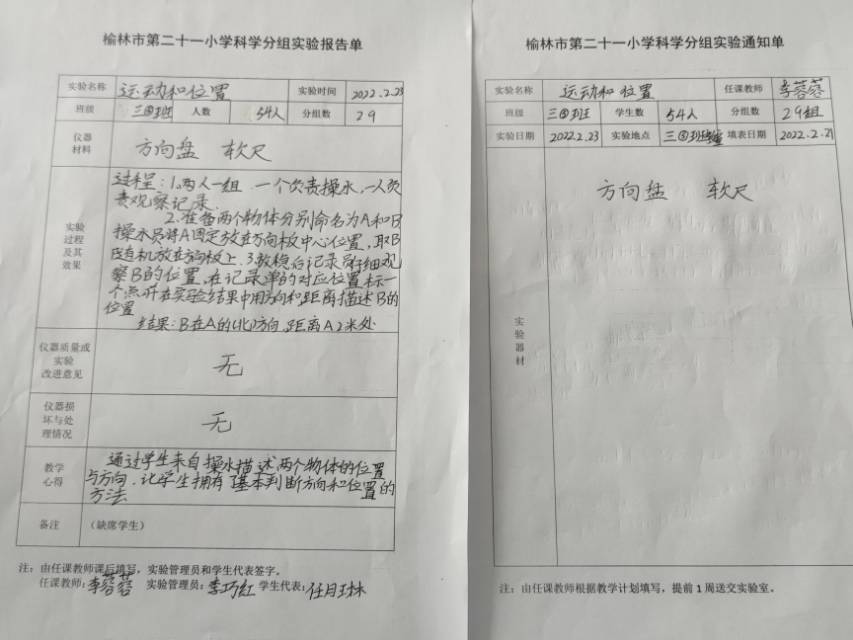 榆林市第二十一小学科学分组实验报告单
实验名称 运动和位置 实验时间 2022.2.23
班级 三④班 人数 54人 分组数 29
仪器
材料
方向盘 软尺
实验
过程
及其
效果
过程:1.两人一组 一个负责操水,一人负
责观察记录.
2.准备两个物体分别命名为A和B
操水员将A固定放在方向板中心位置,取B
随机放在方向板上.3.放稳后记录员仔细观
察B的位置,在记录单的对应位置标一
个点,并在实验结果中用方向和距离描述B的
位置
结果:B在A的(北)方向,距离A2米处
仪器质量或
实验
改进意见
无
仪器损
坏与处
理情况
无
教学
心得
通过学生来自操水描述两个物体的位置
与方向.让学生拥有基本判断方向和位置的
方法
备注 (缺席学生)
注:由任课教师课后填写,实验管理员和学生代表签字。
任课教师:李蓉蓉 实验管理员:李巧红 学生代表:任月琳
榆林市第二十一小学科学分组实验通知单
实验名称 运动和位置 任课教师 李蓉蓉
班级 三④班 学生数 54人 分组数 29组
实验日期 2022.2.23 实验地点 三④班 填表日期 2022.2.21
实
验
器
材
方向盘 软尺
注:由任课教师根据教学计划填写,提前1周送交实验室。